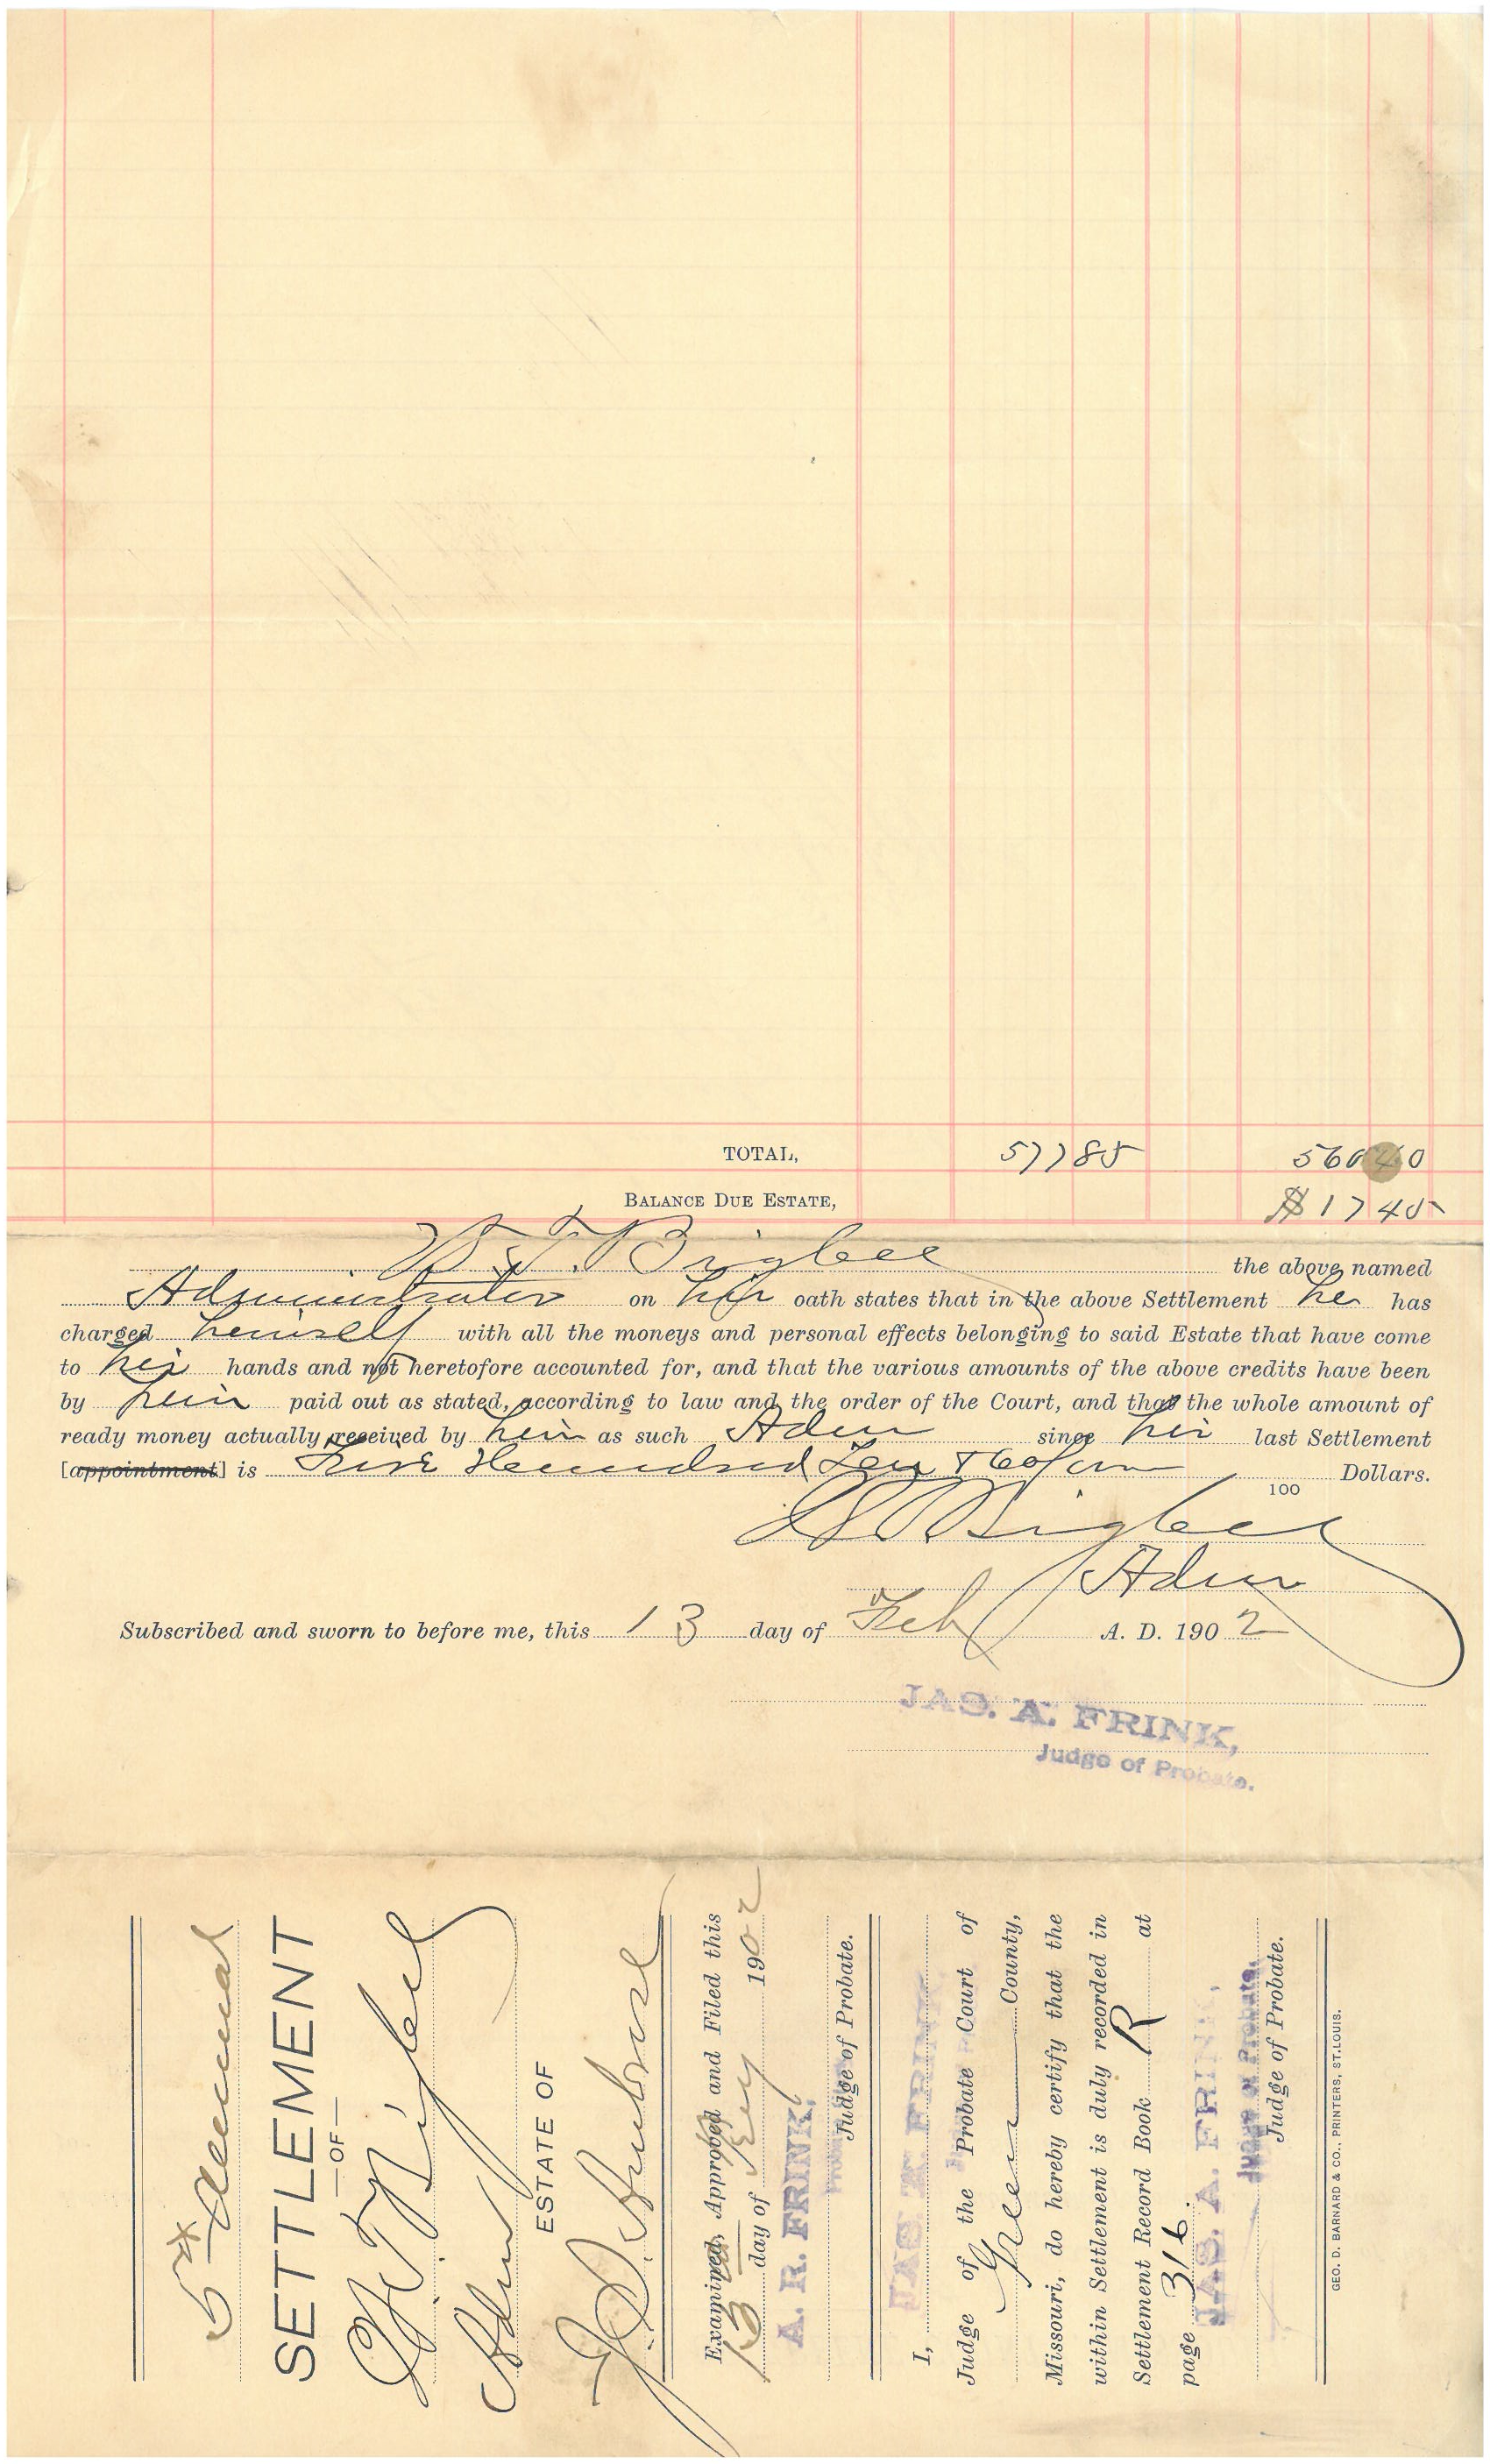 TOTAL, 577 85 560 40
BALANCE DUE ESTATE, $17 45
Bigbee the above named
Administrator on his oath states that in the above Settlement he has
charged himself with all the moneys and personal effects belonging to said Estate that have come
to his hands and not heretofore accounted for, and that the various amounts of the above credits have been
by him paid out as stated, according to law and the order of the Court, and that the whole amount of
ready money actually received by him as such Adm since his last Settlement
[appointment] is Five Hundred Ten & 60/100 Dollars.
100
Bigbee
Adm
Subscribed and sworn to before me, this 13 day of Feb A. D. 1902
JAS. A. FRINK,
Judge of Probate.
5th Annual
SETTLEMENT
—OF—
Bigbee
Adm
ESTATE OF
Examined, Approved and Filed this
13 day of Feby 1902
A. R. FRINK,
Judge of Probate.
I, JAS. A. FRINK
Judge of the Probate Court of
Green County,
Missouri, do hereby certify that the
within Settlement is duly recorded in
Settlement Record Book R at
page 316.
JAS. A. FRINK,
Judge of Probate.
Judge of Probate.
GEO. D. BARNARD & CO., PRINTERS, ST. LOUIS.